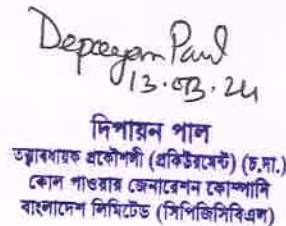 Depayan Paul
13.03.24
দিপায়ন পাল
তত্ত্বাবধায়ক প্রকৌশলী (প্রকিউরমেন্ট) (চ.দা.)
কোল পাওয়ার জেনারেশন কোম্পানি
বাংলাদেশ লিমিটেড (সিপিজিসিবিএল)